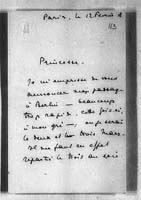 Paris, le 12 Février
113
Princesse,
Je m'empresse de vous
announcer mon passage
à Berlin — beaucoup
trop rapide, cette fois-ci,
à mon gré —, 
le deux et les trois Mars.
Il me faut en effet
repartir le trois au soir